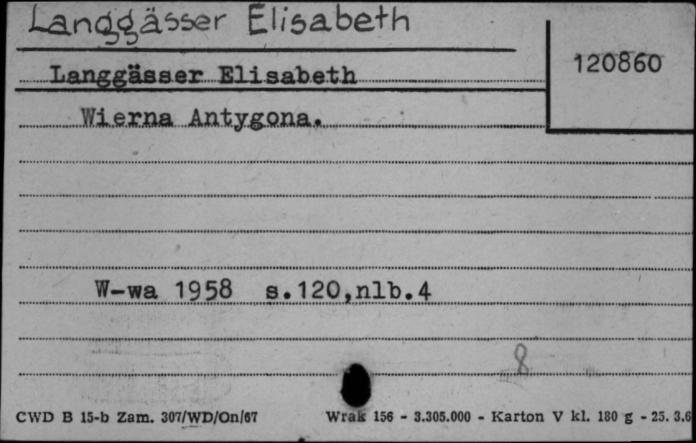 Langgässer Elisabeth
120860
Langgässer Elisabeth
Wierna Antygona.
W-wa 1958 s.120,nlb.4
8
CWD B 15-b Zam. 307/WD/On/67 Wrak 156 - 3.305.000 - Karton V kl. 180 g - 25. 3.6